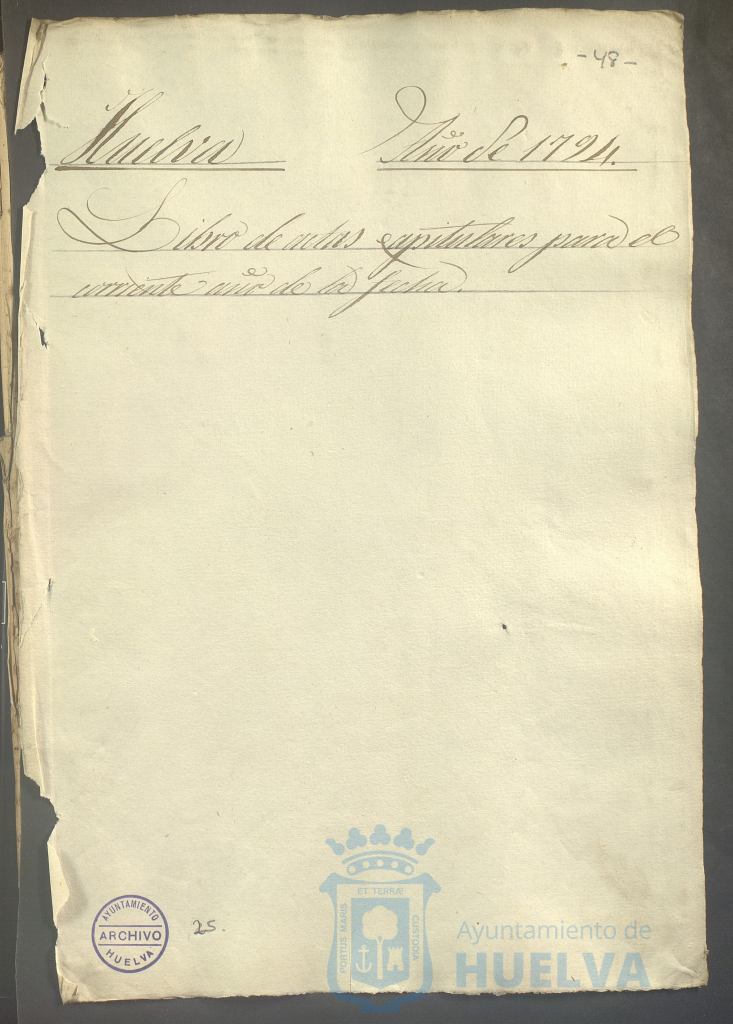 - 48 -
Huelva Año de 1794.
Libro de actas capitulares para el
corriente año de la fecha.
AYUNTAMIENTO
ARCHIVO
HUELVA
25.
ET TERRÆ
PORTUS MARIS
CUSTODIA
Ayuntamiento de
HUELVA